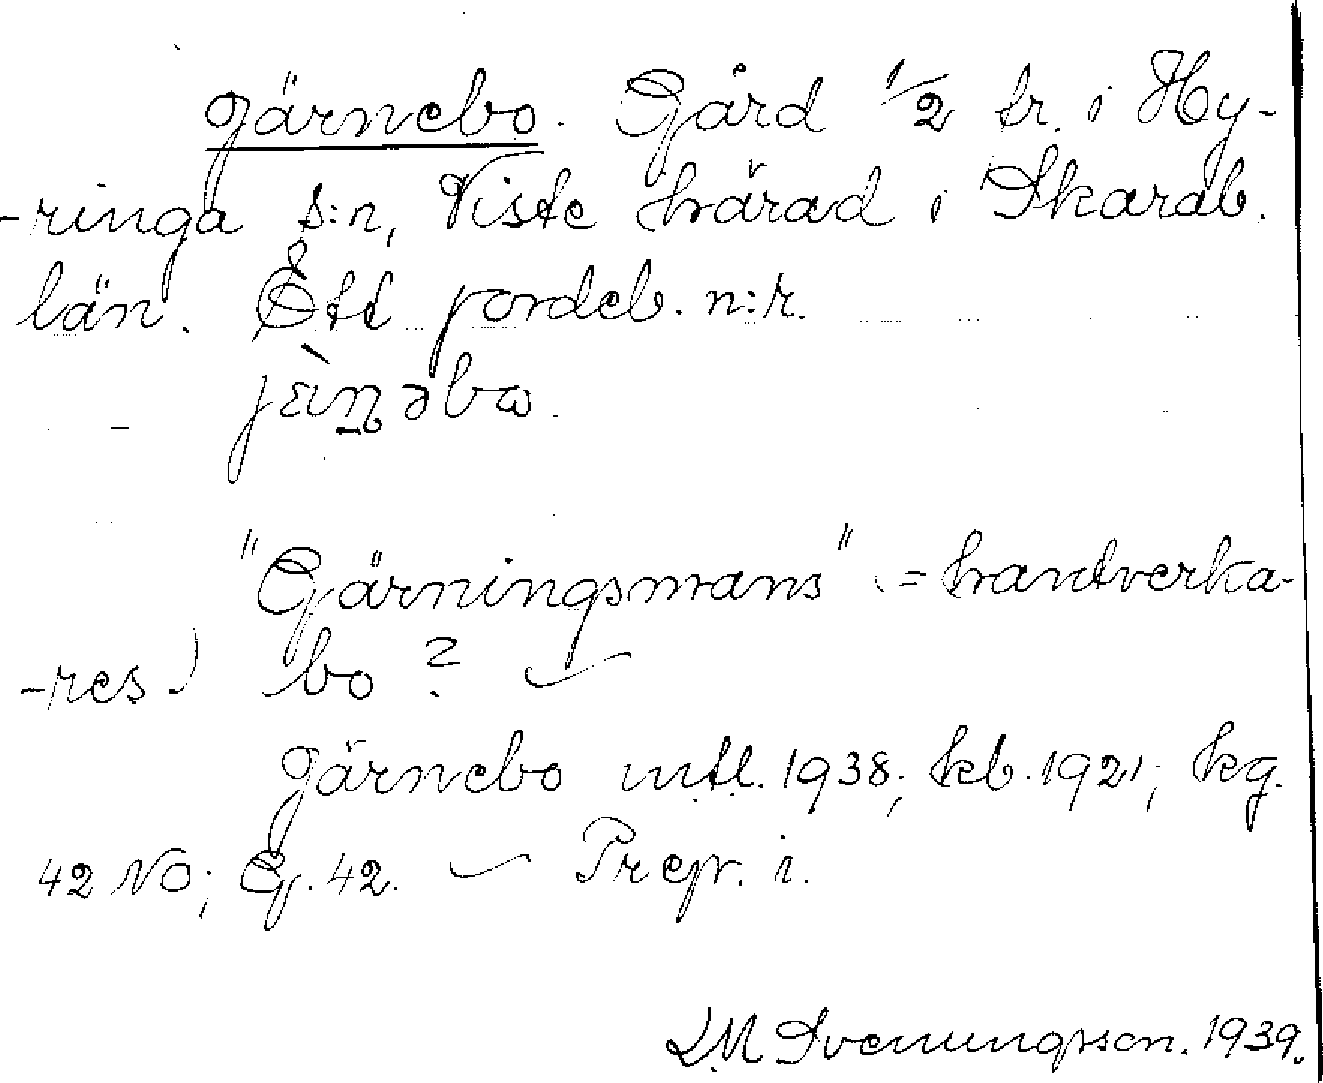 Järnebo. Gård 1/2 kr. i Hy-
-ringa s:n, Viste härad i Skarab.
län. Ett jordeb. n:r.
"Gärningsmans" = handverka-
-res) bo ?
Järnebo mtl. 1938; kb. 1921; kg.
42 NO; G. 42. — Prep. i.
LM Svenungsson. 1939.